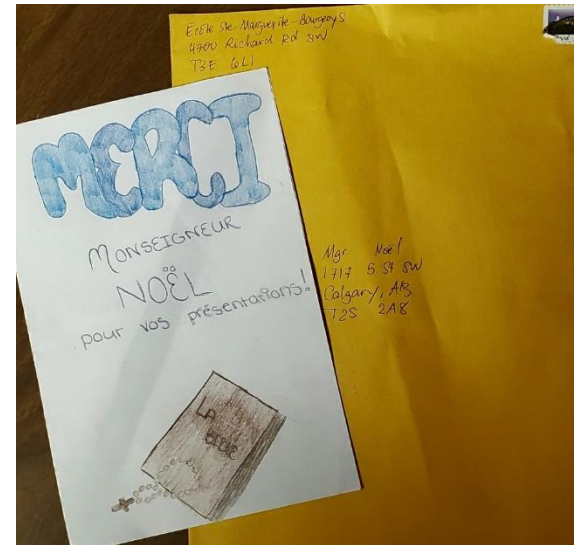 École Ste-Marguerite-Bourgeoys
4700 Richard Rd SW
T3E 6L1
MERCI
MONSEIGNEUR
NOËL
pour vos présentations!
LA
BIBLE
Mgr Noël
1717 5 St SW
Calgary, AB
T2S 2A8